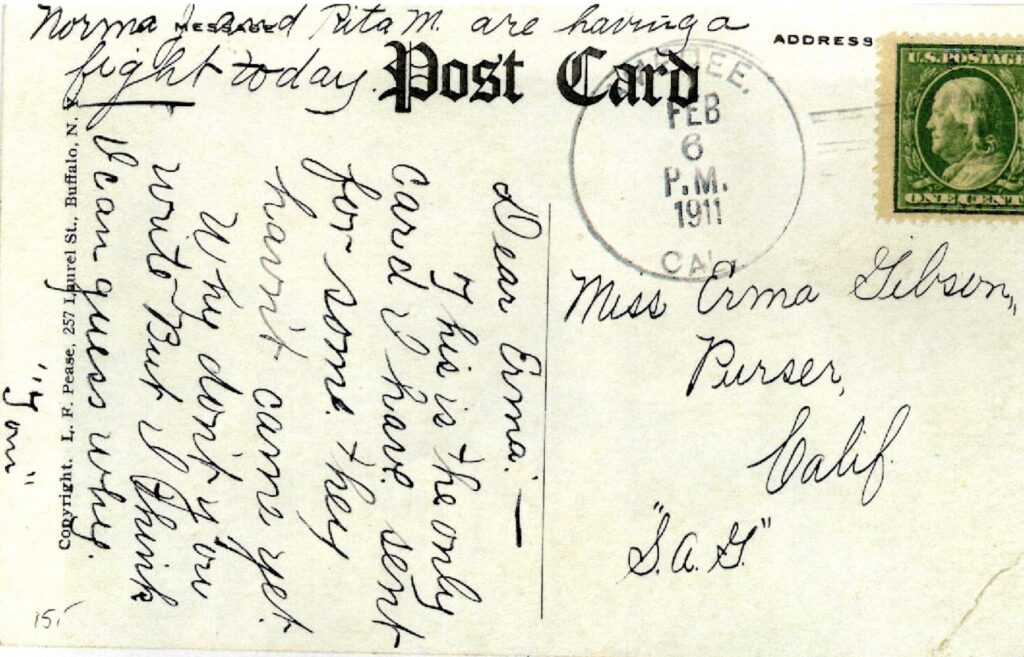 Norma J. and Rita M. are having a
fight today.
MESSAGE
Post Card
ADDRESS
Dear Erma:—
This is the only
card I have. sent
for some. they
havn't came yet.
Why don't you
write But I think
I can guess why.
Copyright, L. F. Pease, 257 Laurel St., Buffalo, N. Y.
FEB
6
P.M.
1911
CAL.
U.S. POSTAGE
ONE CENT
Miss Erma Gibson,
Purser,
Calif.
"S.A.G."
15.-